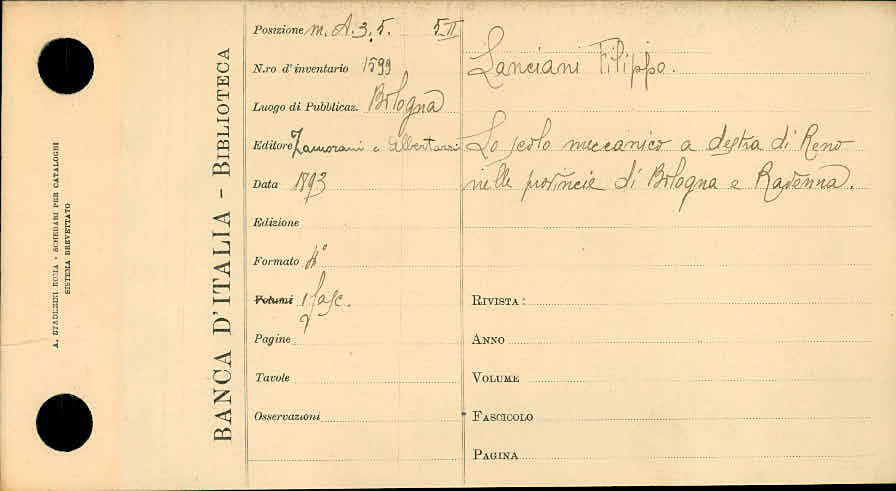 A. STADERINI ROMA - SCHEDARI PER CATALOGHI
SISTEMA BREVETTATO
BANCA D'ITALIA - BIBLIOTECA
Posizione m. A. 3. 5. 5 II
N.ro d'inventario 1599
Luogo di Pubblicaz. Bologna
Editore Zamorani e Albertazzi
Data 1893
Edizione
Formato 8°
Volumi 1 fasc.
Pagine
Tavole
Osservazioni
Lanciani Filippo.
Lo scolo meccanico a destra di Reno
nelle provincie di Bologna e Ravenna.
RIVISTA:
ANNO
VOLUME
FASCICOLO
PAGINA